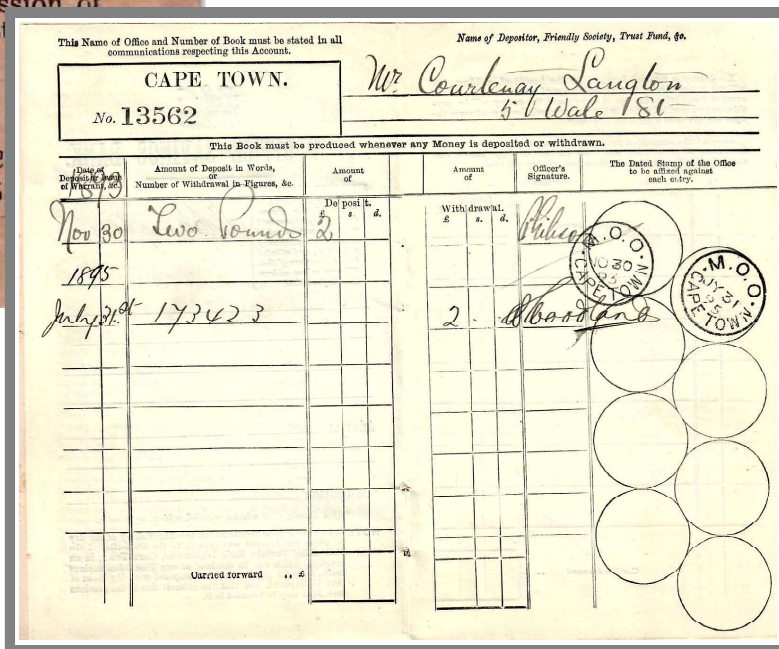 ssion of
This Name of Office and Number of Book must be stated in all
communications respecting this Account.
Name of Depositor, Friendly Society, Trust Fund, &c.
CAPE TOWN.
No. 13562
Mr Courtenay Langton
50 Wale St
This Book must be produced whenever any Money is deposited or withdrawn.
Date of
Deposit or Issue
of Warrant, &c.
Amount of Deposit in Words,
or
Number of Withdrawal in Figures, &c.
Amount
of
Deposit.
£ s. d.
Amount
of
Withdrawal.
£ s. d.
Officer's
Signature.
The Dated Stamp of the Office
to be affixed against
each entry.
Nov 30 Two Pounds 2
M.O.O. CAPE TOWN
30
1895
July 31st 173423 2
M.O.O. CAPE TOWN
JY 31
95
Carried forward .. £